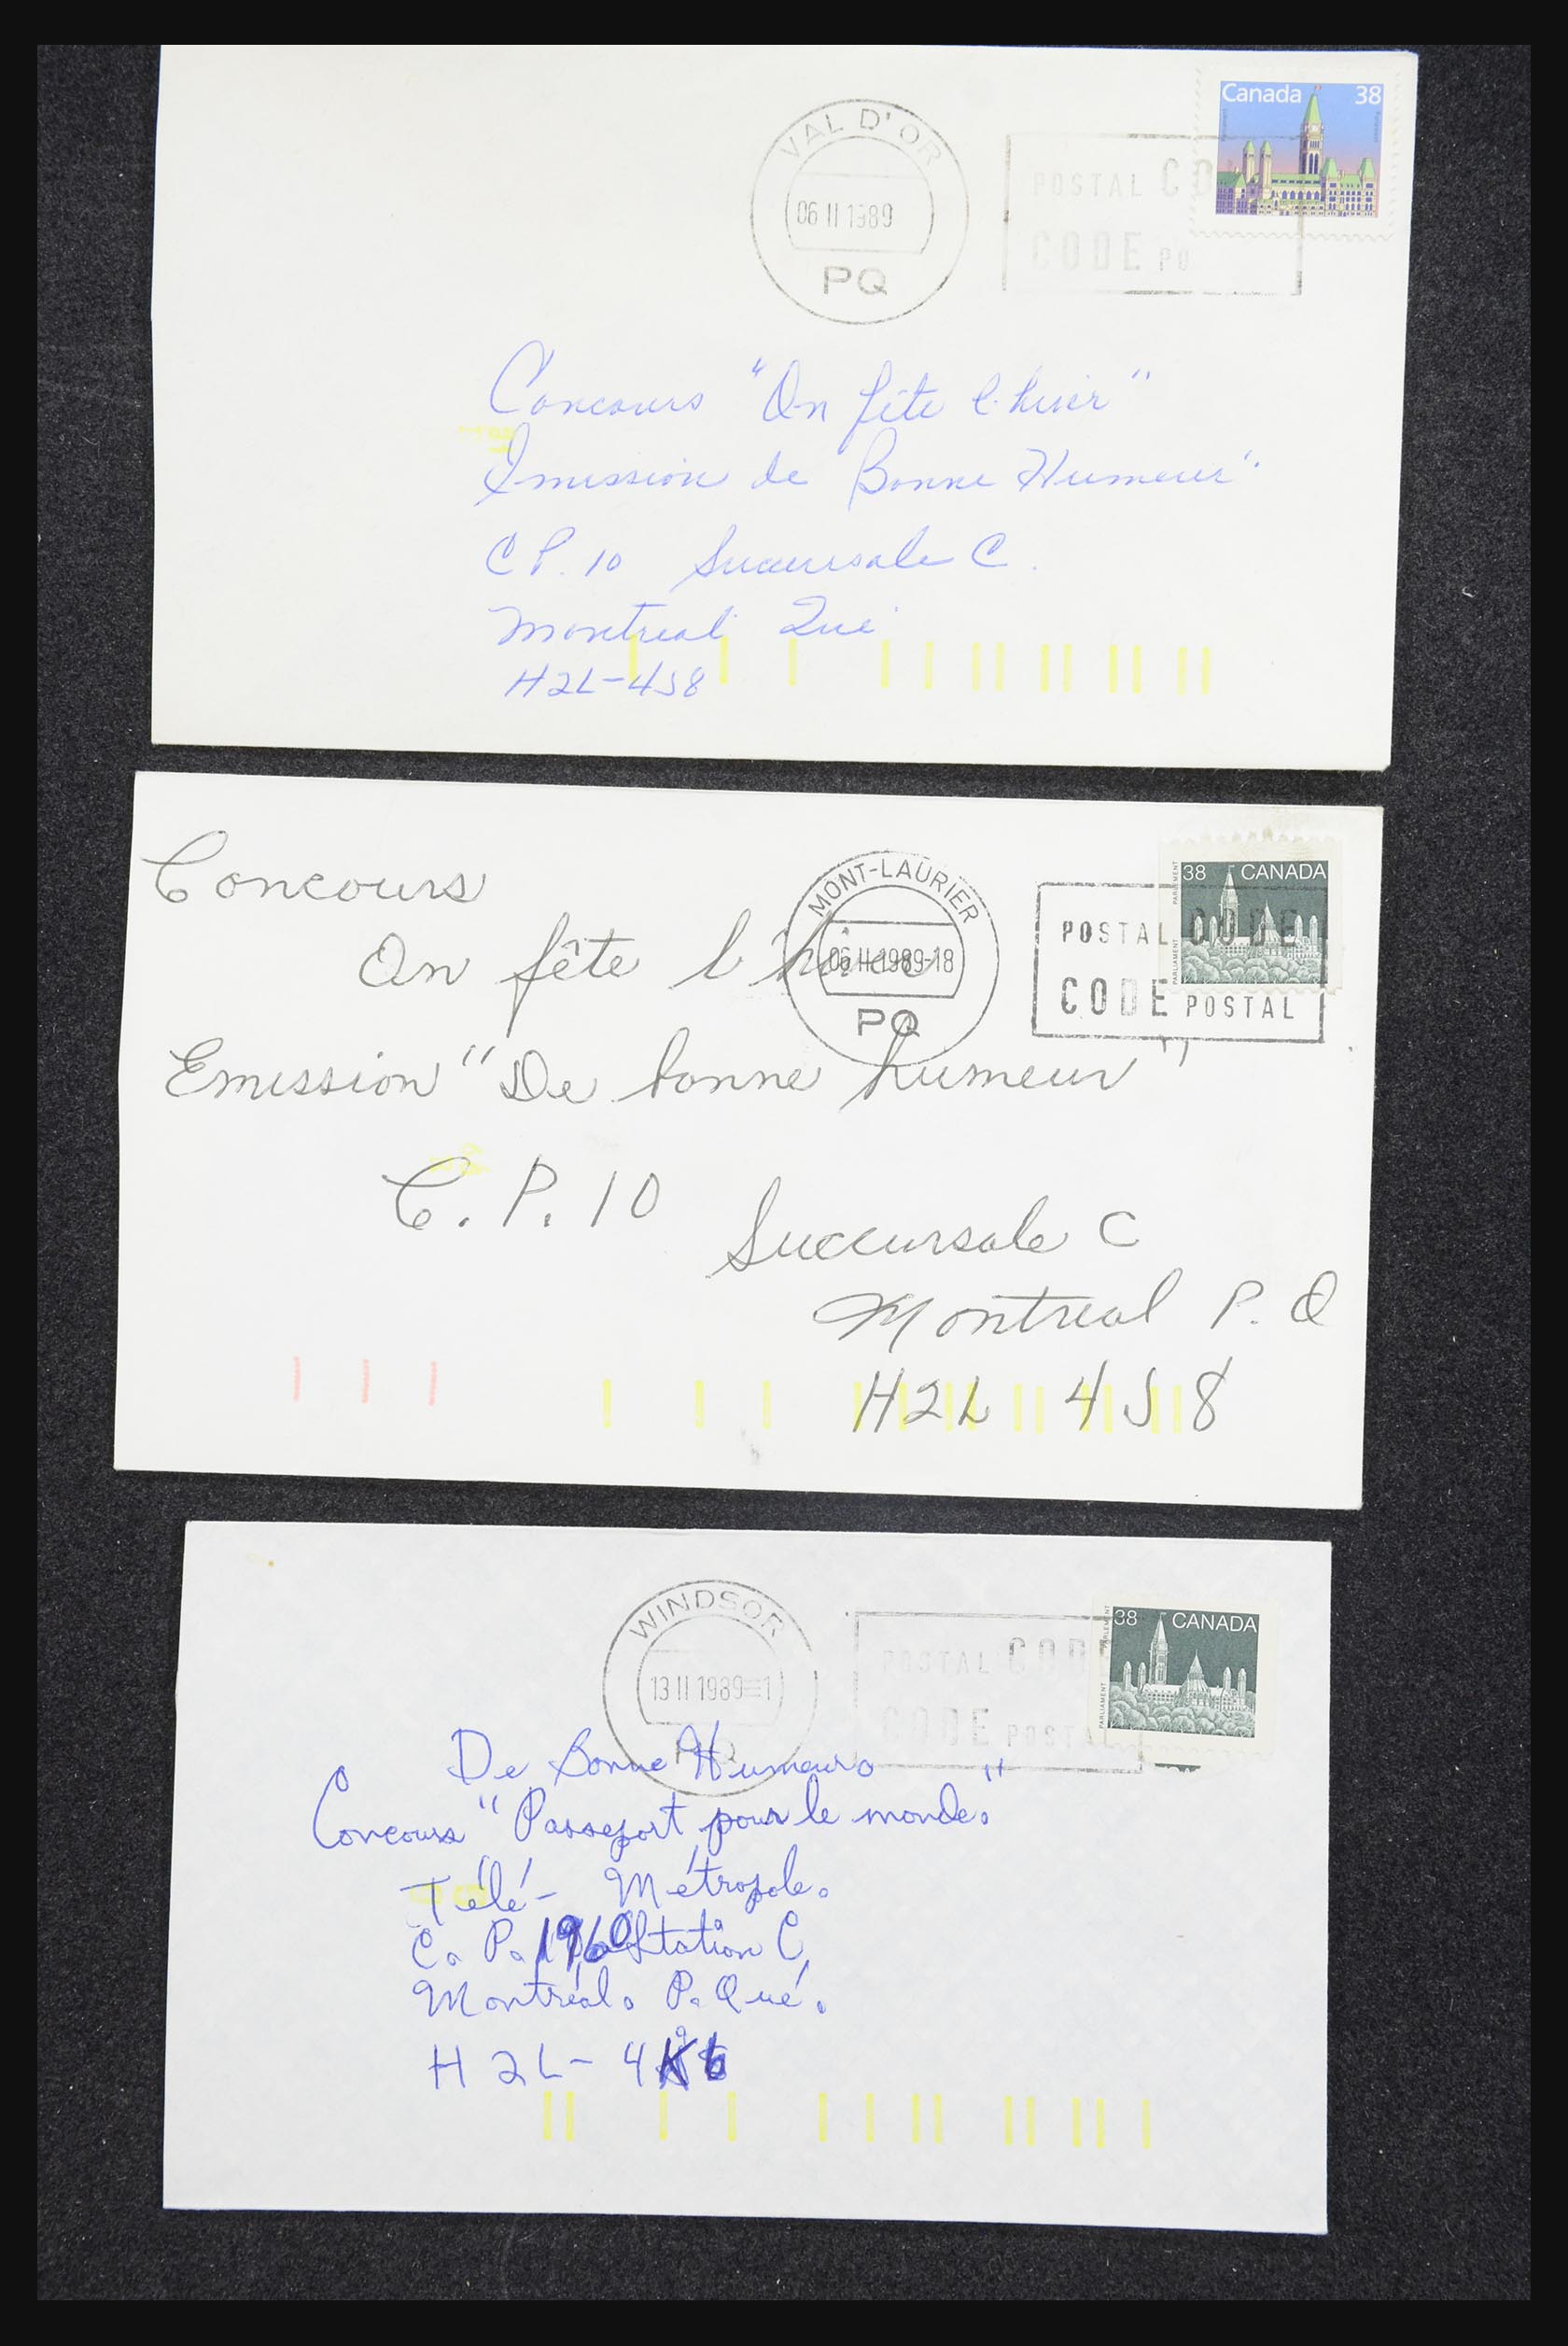 Canada 38
VAL D'OR
06 II 1989
PQ
POSTAL CO
CODE PO
Concours "On fête l'hiver"
Émission de "Bonne Humeur"
C P. 10 Succursale C.
Montreal Qué
H2L-4J8
38 CANADA
PARLEMENT
PARLIAMENT
MONT-LAURIER
06 II 1989-18
PQ
POSTAL CODE
CODE POSTAL
Concours
On fête l'hiver
Emission "De bonne humeur"
C. P. 10
Succursale C
Montreal P. Q
H2L 4J8
38 CANADA
PARLEMENT
PARLIAMENT
WINDSOR
13 II 1989 1
PQ
POSTAL COD
CODE POSTAL
De Bonne Humeur
Concours "Passeport pour le monde."
Télé-Métropole.
C. P. 1960 Station C,
Montréal. P. Qué.
H2L-4K6